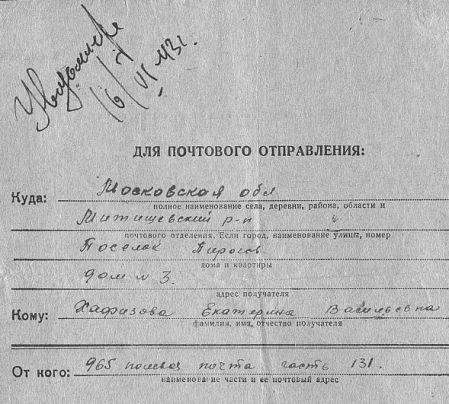 16/VI 43г.
ДЛЯ ПОЧТОВОГО ОТПРАВЛЕНИЯ:
Куда: Московская обл
полное наименование села, деревни, района, области и
Митищевский р-н
почтового отделения. Если город, наименование улицы, номер
Поселок Пирогов
дома и квартиры
дом № 3.
адрес получателя
Кому: Хафизова Екатерина Васильевна
фамилия, имя, отчество получателя
От кого: 965 полевая почта часть 131.
наименование части и ее почтовый адрес